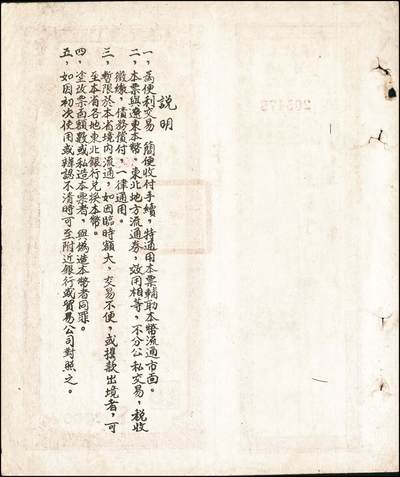 説明
一，為便利交易，簡便收付手續，特通用本票輔助本幣流通市面。
二，本票與遼東本幣，東北地方流通券，效用相等，不分公私交易，税收
徵繳，債務償付，一律通用。
三，暫限於本省境内流通，如因臨時額大，交易不便，或携款出境者，可
至本省各地東北銀行兑换本幣。
四，塗改票面額數或私造本票者，與偽造本幣者同罪。
五，如因初次使用或辨認不清時可至附近銀行或貿易公司對照之。